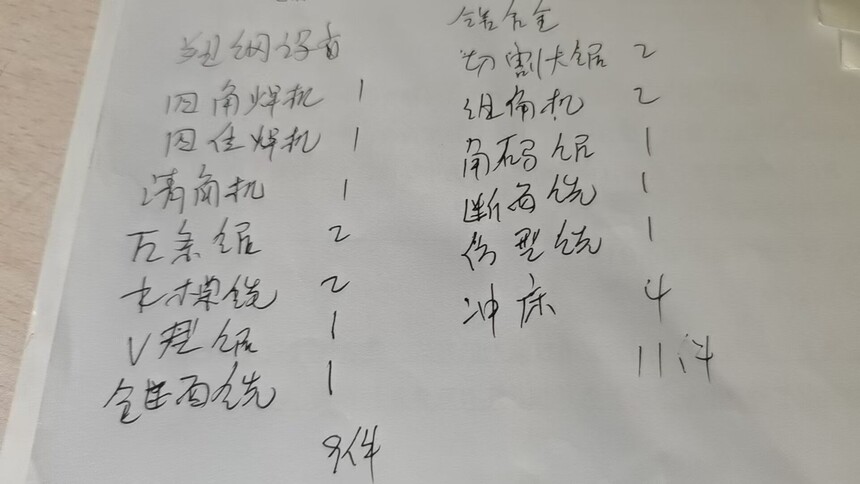 塑钢设备
四角焊机 1
四佳焊机 1
清角机 1
压条锯 2
水槽铣 2
V型锯 1
断面铣 1
9件
铝合金
切割大锯 2
组角机 2
角码锯 1
断面铣 1
仿型铣 1
冲床 4
11件